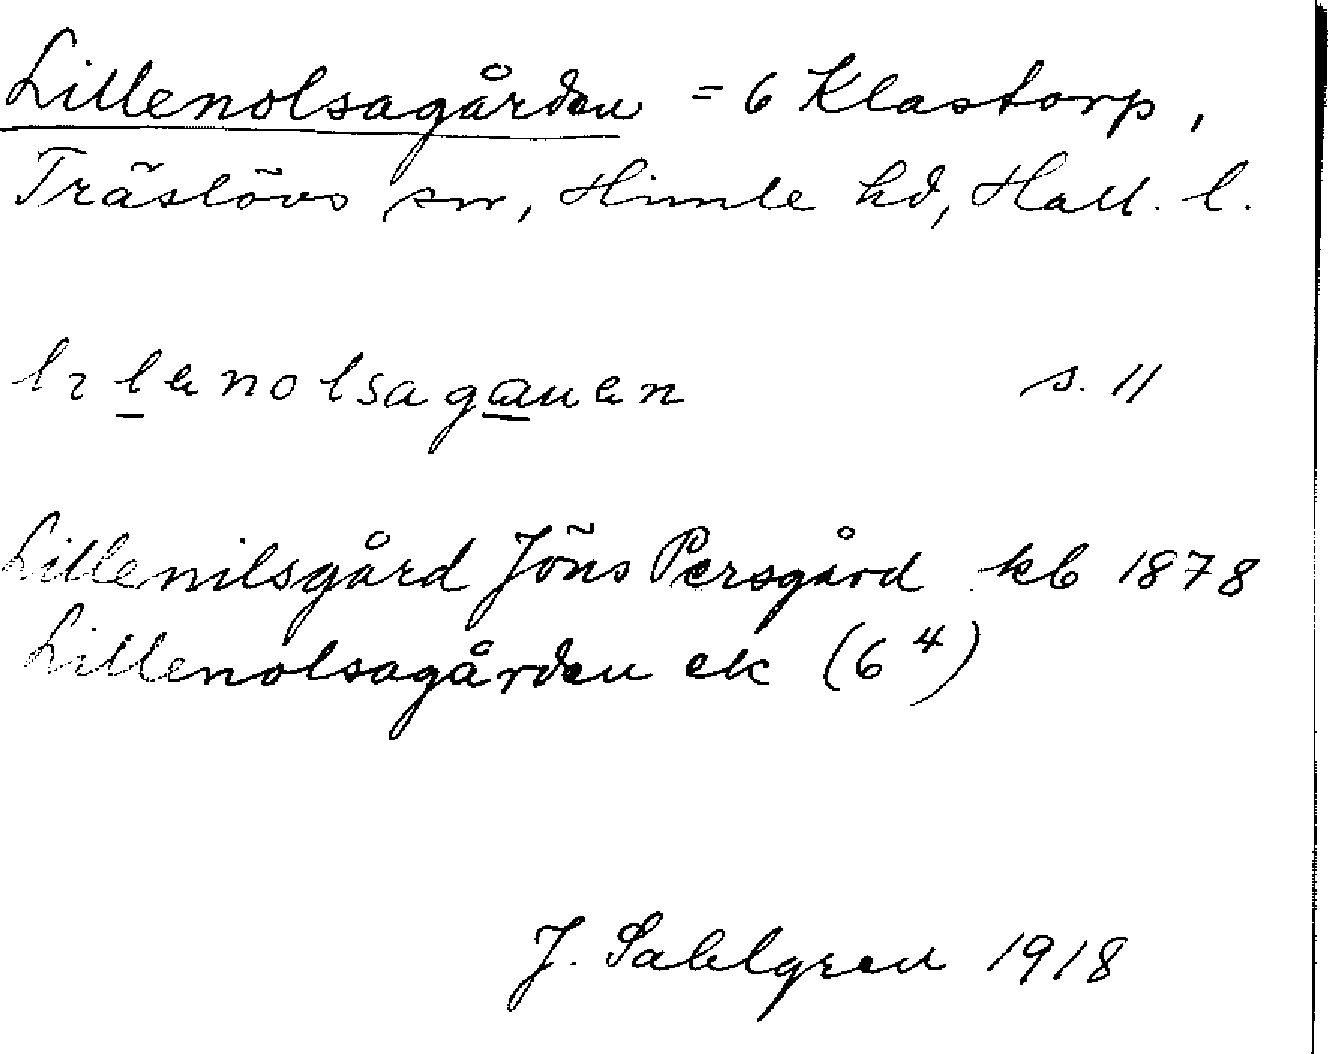 Lillenolsagården = 6 Klastorp,
Träslövs sn, Himle hd, Hall. l.
lılenolsagauen s. 11
Lillenilsgård Jöns Persgård kb 1878
Lillenolsagården ek (6⁴)
J. Sahlgren 1918